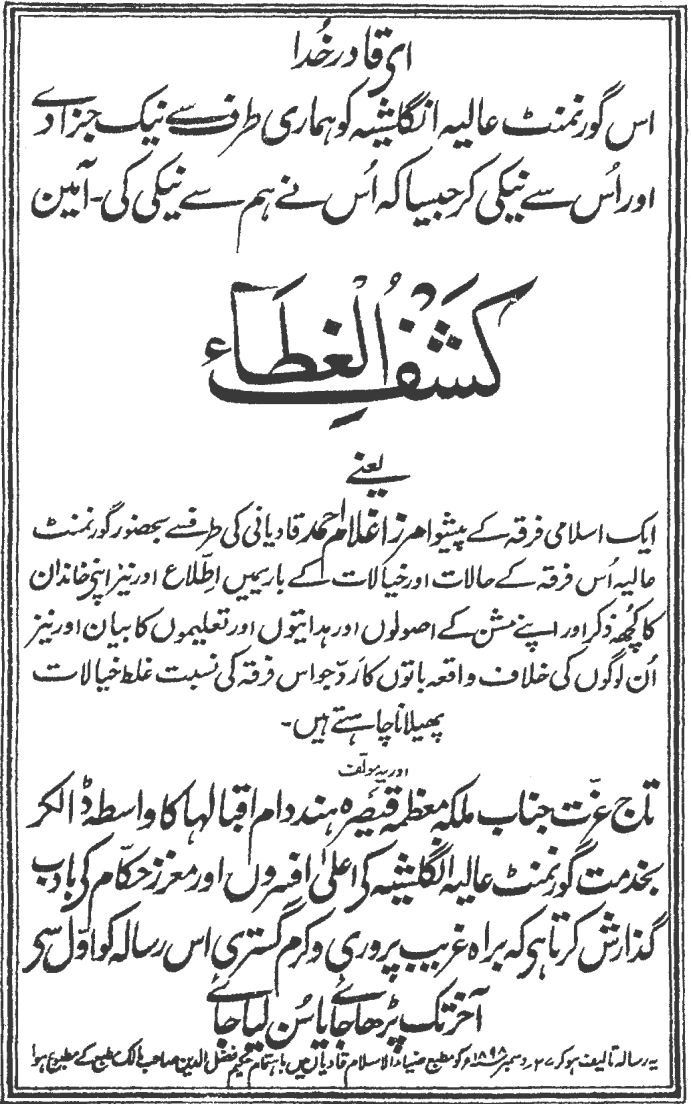 ای قادر خُدا
اس گورنمنٹ عالیہ انگلشیہ کو ہماری طرف سے نیک جزا دے
اور اُس سے نیکی کر جیسا کہ اُس نے ہم سے نیکی کی۔ آمین
کَشْفُ الْغِطَاء
یعنے
ایک اسلامی فرقہ کے پیشوا مرزا غلام احمد قادیانی کی طرف سے بحضور گورنمنٹ
عالیہ اُس فرقہ کے حالات اور خیالات کے بارے میں اطّلاع اور نیز اپنی خاندان
کا کُچھ ذکر اور اپنے مشن کے اصولوں اور ہدایتوں اور تعلیموں کا بیان اور نیز
اُن لوگوں کی خلاف واقعہ باتوں کا ردّ جو اس فرقہ کی نسبت غلط خیالات
پھیلانا چاہتے ہیں۔
اور یہ مولّف
تاج عزّت جناب ملکہ معظمہ قیصرہ ہند دام اقبالہا کا واسطہ ڈالکر
بخدمت گورنمنٹ عالیہ انگلشیہ کی اعلیٰ افسروں اور معزز حکّام کی بادب
گذارش کرتا ہی کہ براہ غریب پروری و کرم گستری اس رسالہ کو اوّل سی
آخر تک پڑھا جائے یا سُن لیا جائے
یہ رسالہ تالیف ہو کر ۲۷؍ دسمبر ۱۸۹۸ء کو مطبع ضیاء الاسلام قادیاں میں باہتمام حکیم فضل الدین صاحب مالک مطبع کے مطبوع ہوا